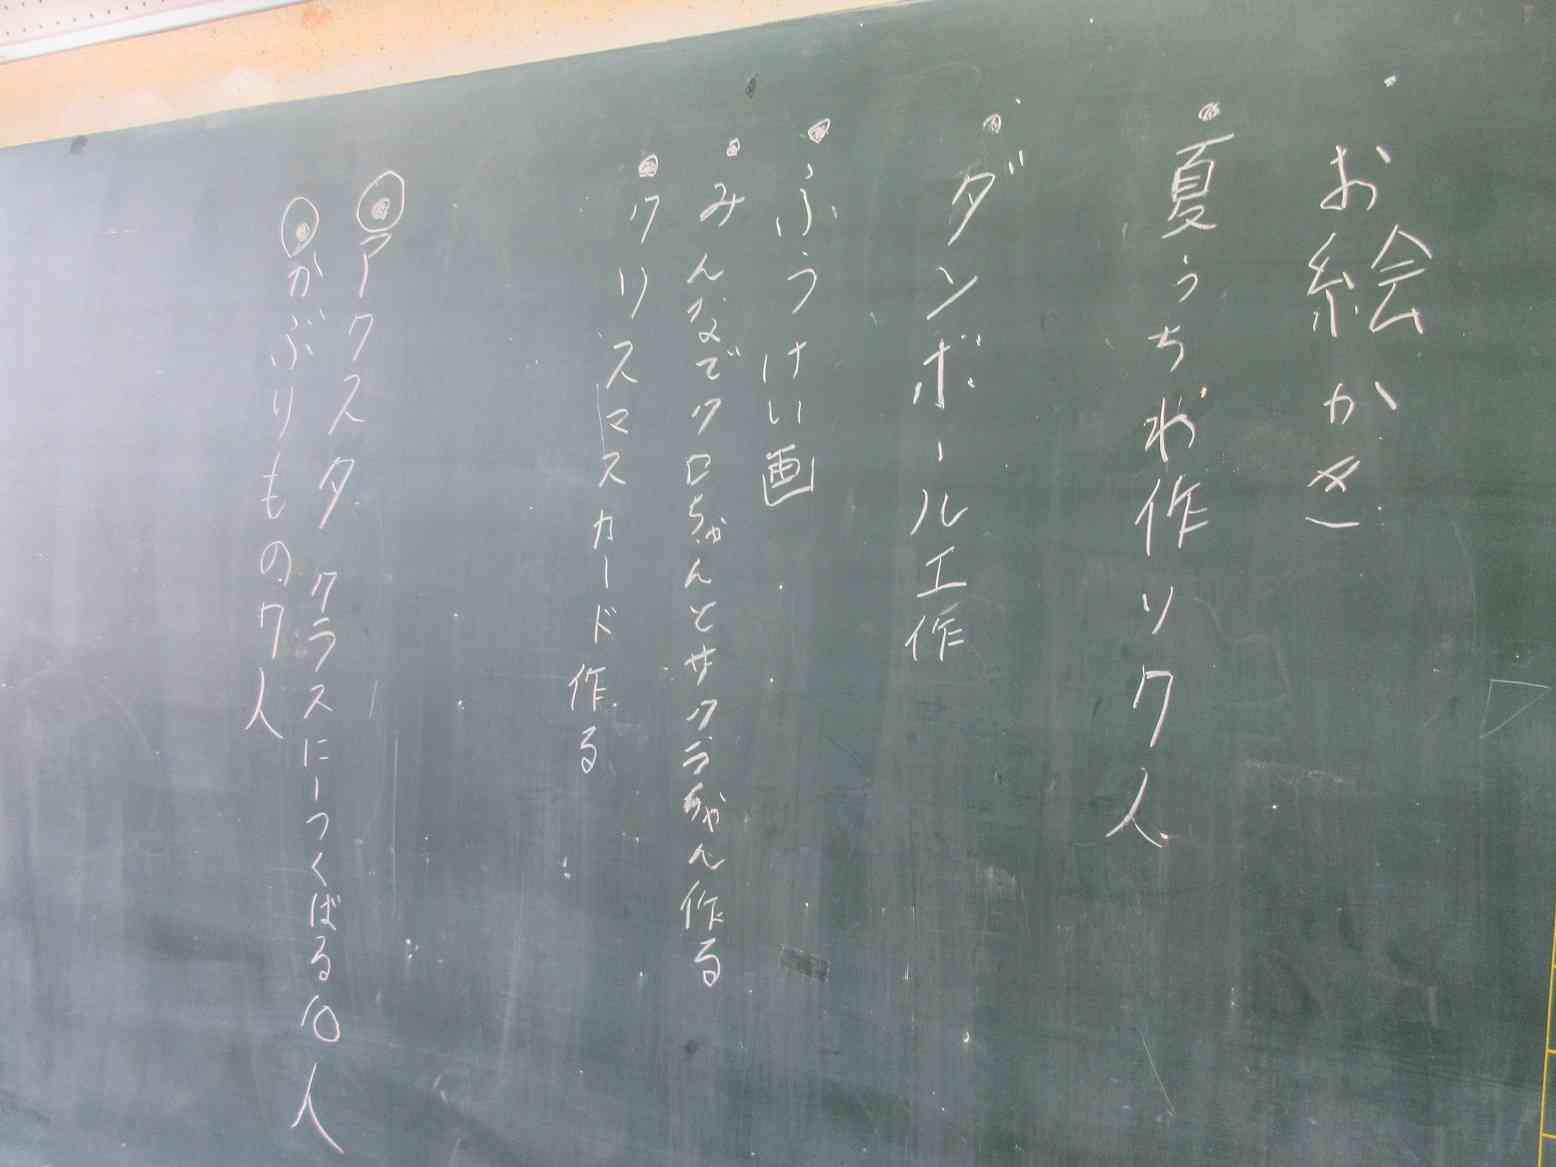 ・お絵かき
・夏うちわ作り7人
・ダンボール工作
・ふうけい画
・みんなでクロちゃんとサクラちゃん作る
・クリスマスカード作る
・アークスタ クラスに1つくばる10人
・かぶりもの7人